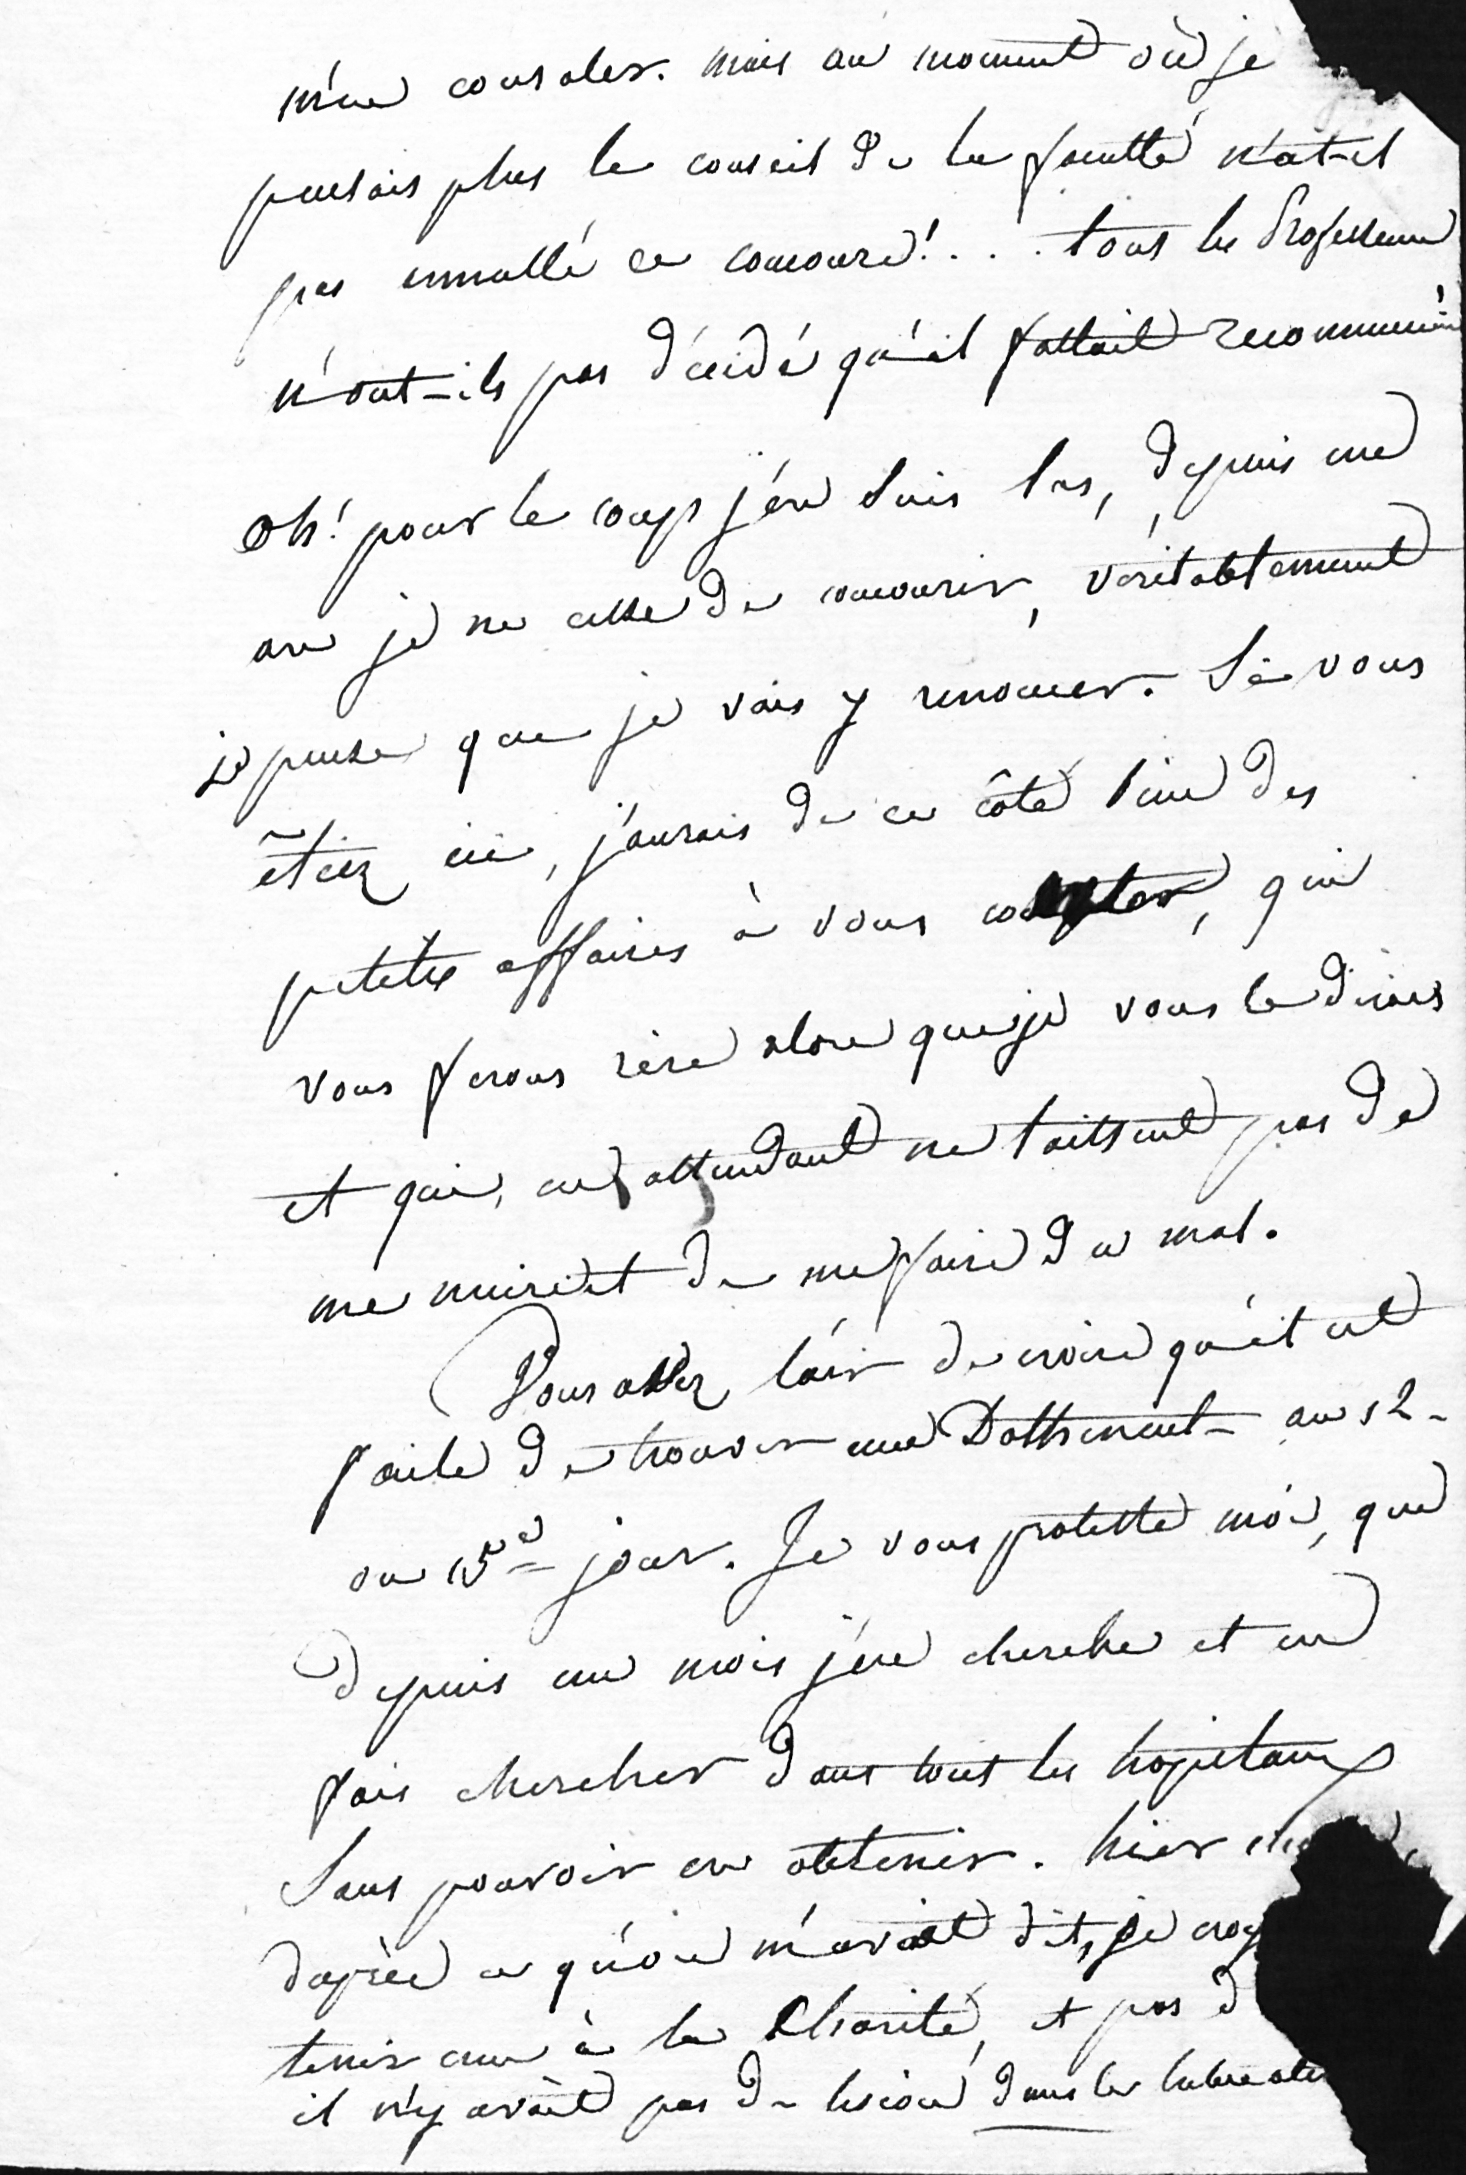 m'en consoler. mais au moment où je
pensais plus le conseil de la faculté n'at-il
pas annullé ce concours!... tous les Professeurs
n'ont-ils pas décidé qu'il fallait recommencer
Oh! pour le coup j'en suis las, depuis un
an je ne cesse de concourir, véritablement
je pense que je vais y renoncer. Si vous
êtiez ici, j'aurais de ce côté bien des
petites affaires à vous conter, qui
vous ferons rire alors que je vous le dirais
et qui, en attendant ne laissent pas de
me nuire et de me faire du mal.
Vous avez l'air de croire qu'il est
facile de trouver une Dothinent- au 12-
ou 15me jour. Je vous proteste moi, que
depuis un mois j'en cherche et en
fais chercher dans tous les hopitaux
sans pouvoir en obtenir. hier
d'après ce qu'on m'avait dit, je croy
tenir une à la Charité, et pas d
il n'y avait pas de lésion dans les